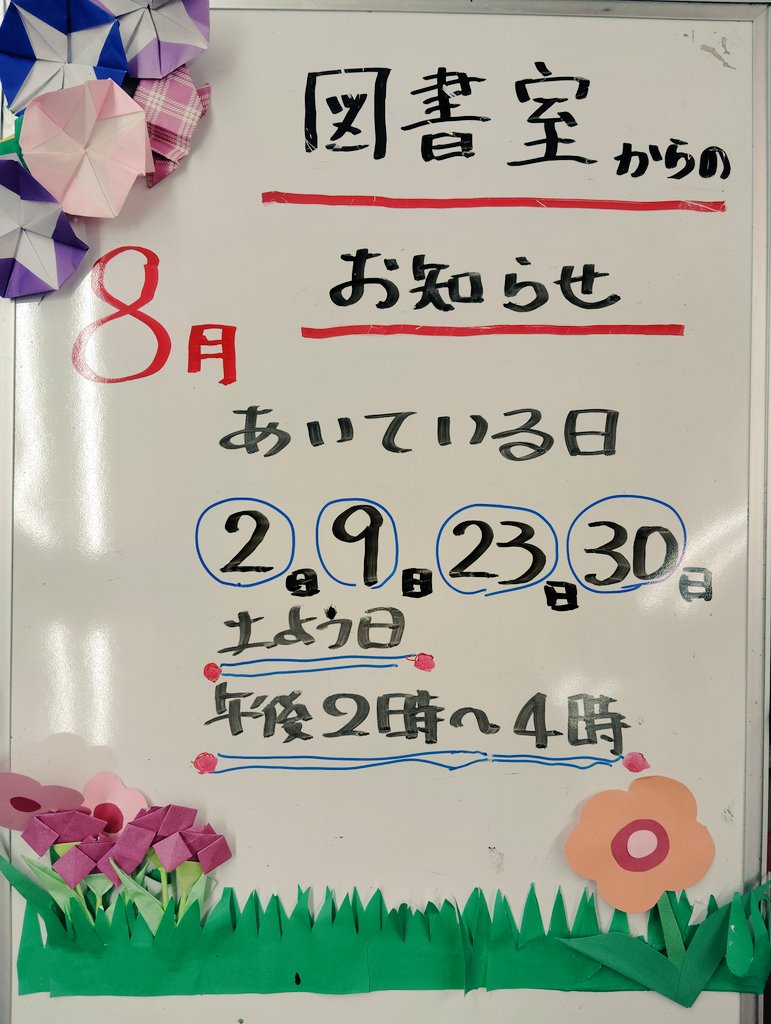 図書室からの
お知らせ
8月
あいている日
2日 9日 23日 30日
土よう日
午後2時〜4時